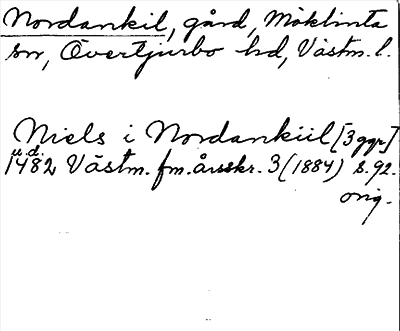 Nordankil, gård, Möklinta
sn, Övertjurbo hd, Västm. l.
Niels i Nordankiil [3 ggr]
u.d.
1482 Västm. fm. årsskr. 3 (1884) s. 92.
orig.